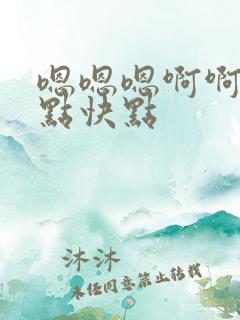 嗯嗯嗯啊啊
點快點
沐沐
未经同意禁止转载